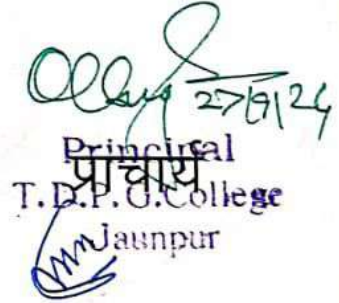 27/9/24
Principal
प्राचार्य
T.D.P.G.College
Jaunpur